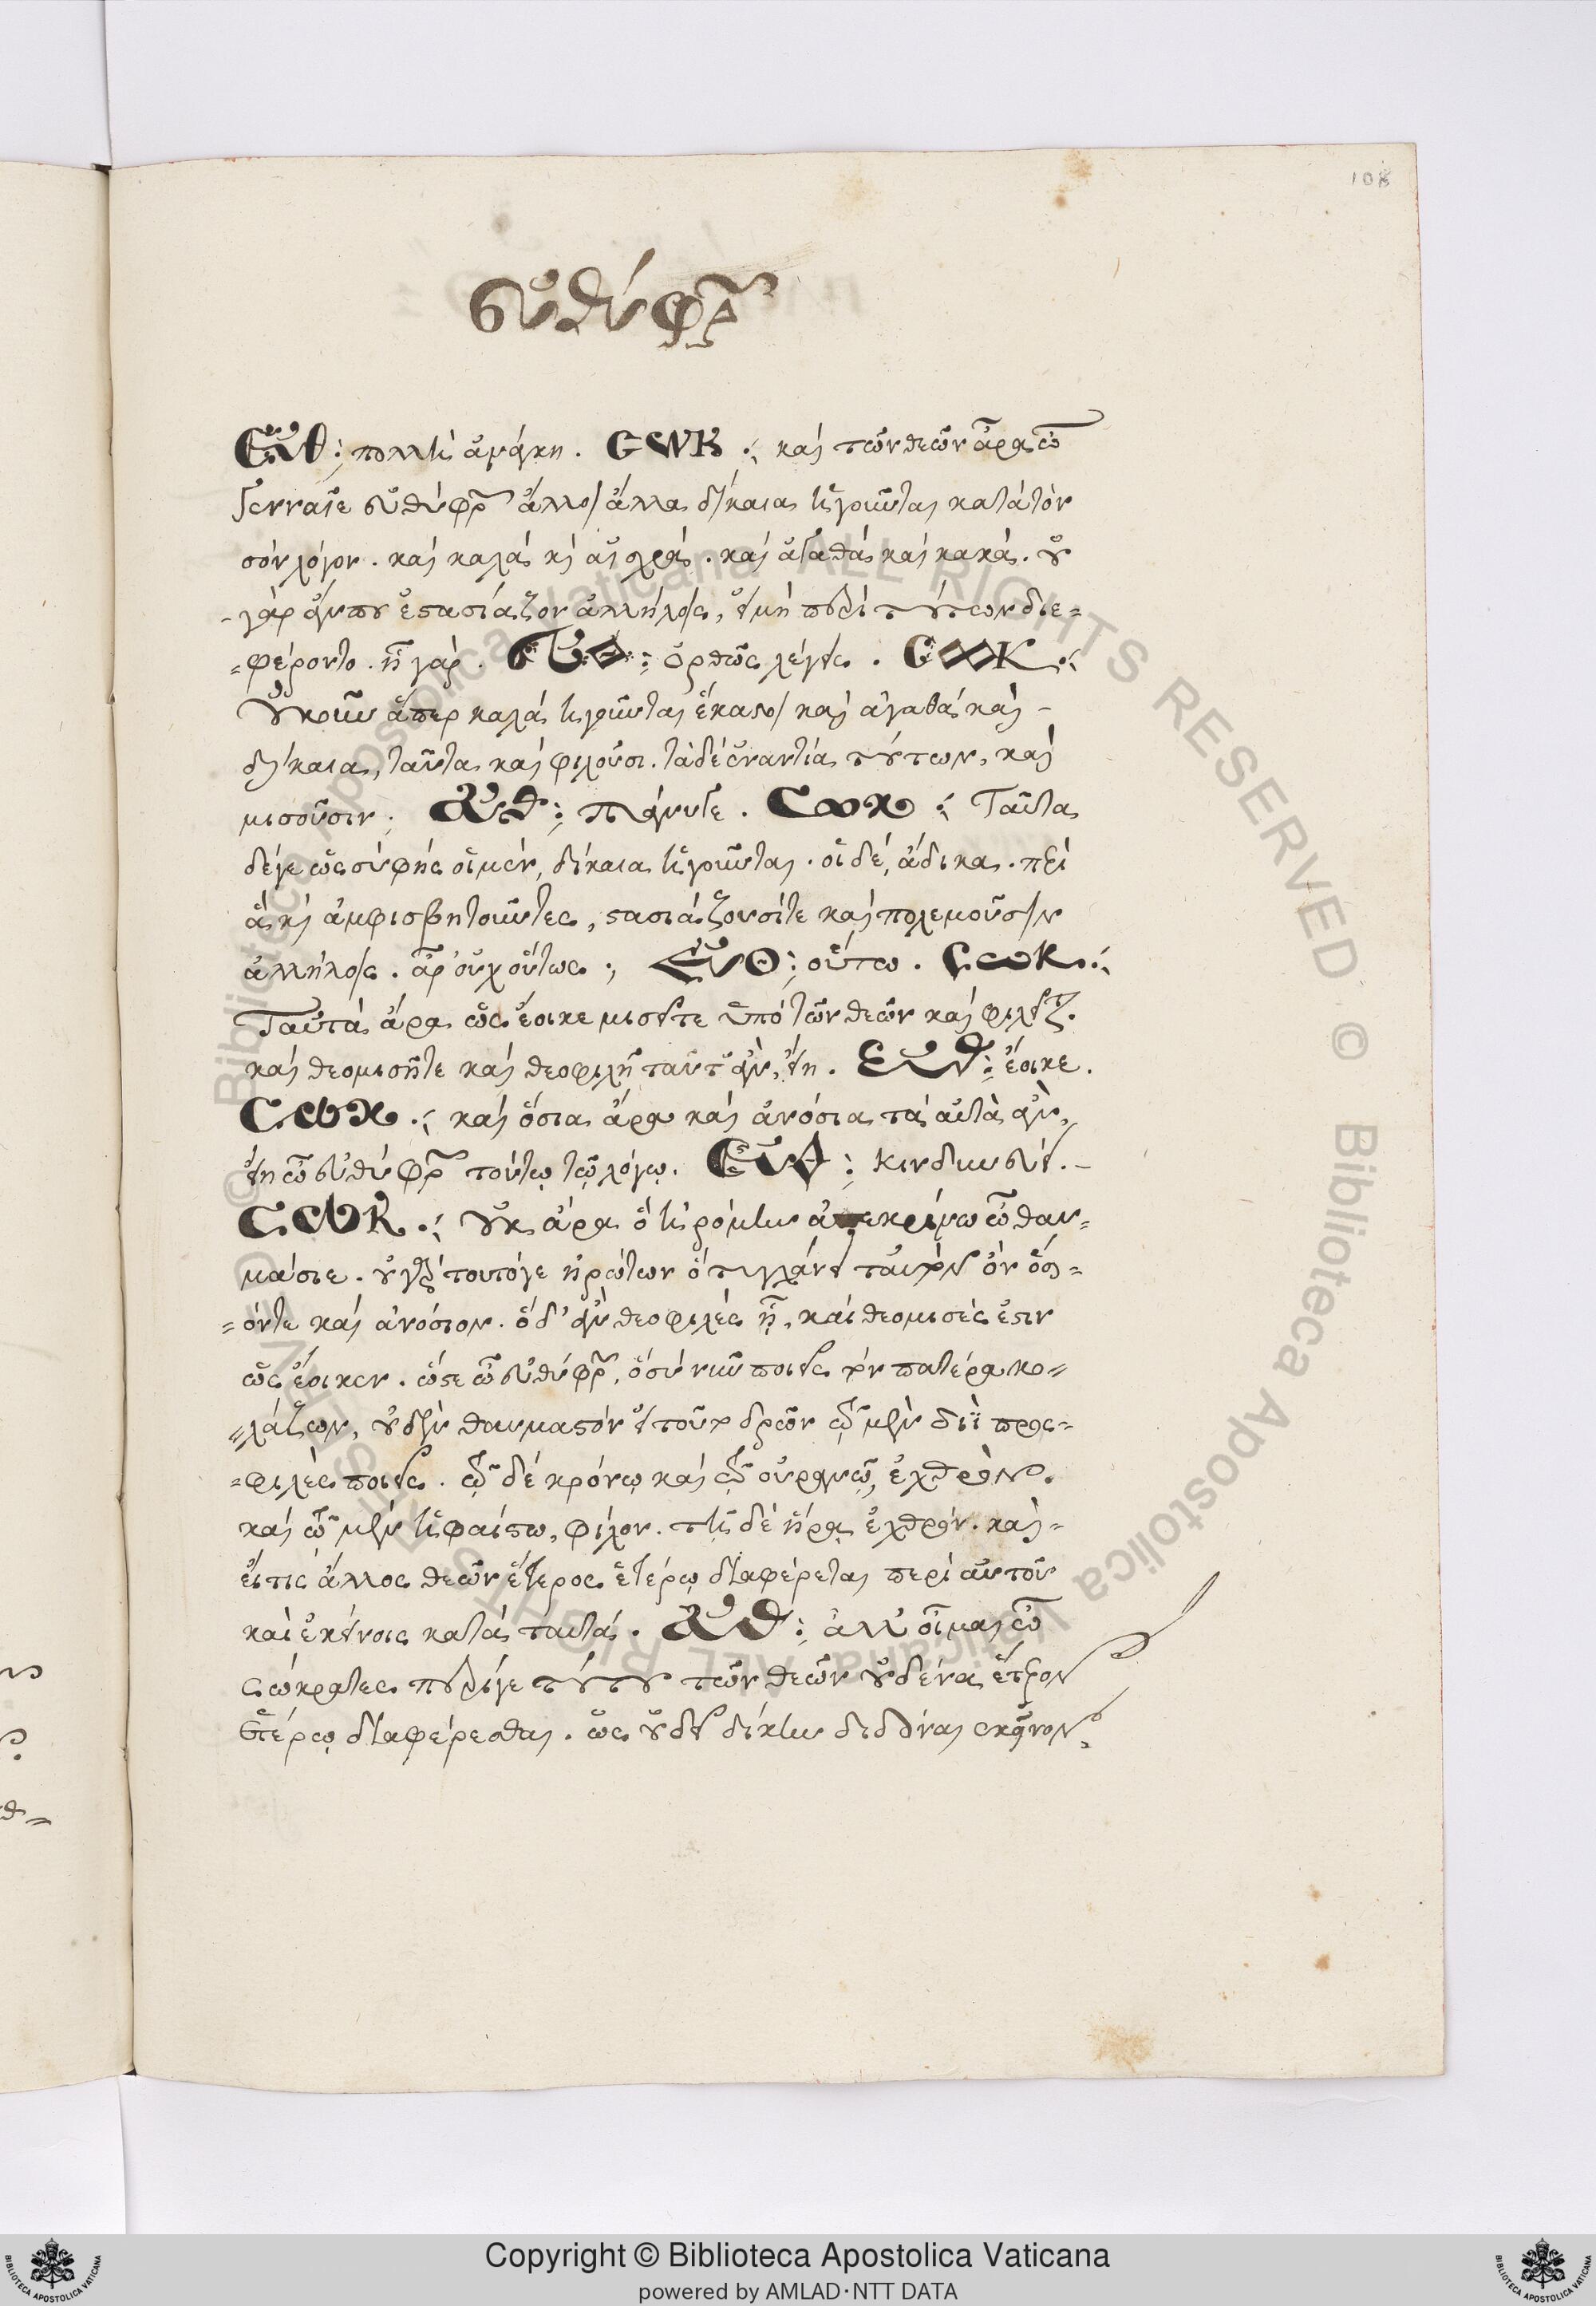 108
εὐθύφρ
Εὐθ: πολλὴ ἀνάγκη. Σωκ: καὶ τῶν θεῶν ἆρα ὦ
γενναῖε εὐθύφρ ἄλλοι ἄλλα δίκαια ἡγοῦνται κατὰ τὸν
σὸν λόγον. καὶ καλὰ κὶ αἰσχρά. καὶ ἀγαθὰ καὶ κακά. οὐ
γὰρ ἄν που ἐστασίαζον ἀλλήλοις, εἰ μὴ περὶ τούτων διε-
=φέροντο. ἦ γάρ. Εὐθ: ὀρθῶς λέγεις. Σωκ:
οὐκοῦν ἅπερ καλὰ ἡγοῦνται ἕκαστοι καὶ ἀγαθὰ καὶ -
δίκαια, ταῦτα καὶ φιλοῦσι. τὰ δὲ ἐναντία τούτων, καὶ
μισοῦσιν; Εὐθ: πάνυ γε. Σωκ: Ταῦτα
δέ γε ὡς σὺ φῂς οἱ μὲν, δίκαια ἡγοῦνται. οἱ δέ, ἄδικα. περὶ
ἃ κὶ ἀμφισβητοῦντες, στασιάζουσί τε καὶ πολεμοῦσιν
ἀλλήλοις. ἆρ' οὐχ οὕτως; Εὐθ: οὕτω. Σωκ:
Ταὐτὰ ἄρα ὡς ἔοικε μισεῖτε ὑπὸ τῶν θεῶν καὶ φιλεῖτ.
καὶ θεομισῆ τε καὶ θεοφιλῆ ταῦτ' ἂν, εἴη. Εὐθ: ἔοικε.
Σωκ: καὶ ὅσια ἄρα καὶ ἀνόσια τὰ αὐτὰ ἂν,
εἴη ὦ εὐθύφρ τούτῳ τῷ λόγῳ. Εὐθ: κινδυνεύει. -
Σωκ: οὐκ ἄρα ὃ ἠρόμην ἀπεκρίνω ὦ θαυ=
μάσιε. οὐ γὰρ τοῦτό γε ἠρώτων ὃ τυγχάνει ταὐτὸν ὂν ὅσι=
=όν τε καὶ ἀνόσιον. ὃ δ' ἂν θεοφιλὲς ᾖ, καὶ θεομισές ἐστιν
ὡς ἔοικεν. ὥστε ὦ εὐθύφρ, ὃ σὺ νῦν ποιεῖς τὸν πατέρα κο=
=λάζων, οὐδὲν θαυμαστὸν εἰ τοῦτο δρῶν τῷ μὲν διῒ προς=
=φιλὲς ποιεῖς. τῷ δὲ κρόνῳ καὶ τῷ οὐρανῷ, ἐχθρόν.
καὶ τῷ μὲν ἡφαίστω, φίλον. τῇ δὲ ἥρᾳ ἐχθρόν. καὶ=
εἴ τις ἄλλος θεῶν ἕτερος ἑτέρῳ διαφέρεται περὶ αὐτοῦ
καὶ ἐκείνοις κατὰ ταὐτά. Εὐθ: ἀλλ' οἶμαι ὦ
σώκρατες περί γε τούτου τῶν θεῶν οὐδένα ἕτερον
ἑτέρῳ διαφέρεσθαι. ὡς οὐ δεῖ δίκην διδόναι ἐκεῖνον
Copyright © Biblioteca Apostolica Vaticana
powered by AMLAD·NTT DATA